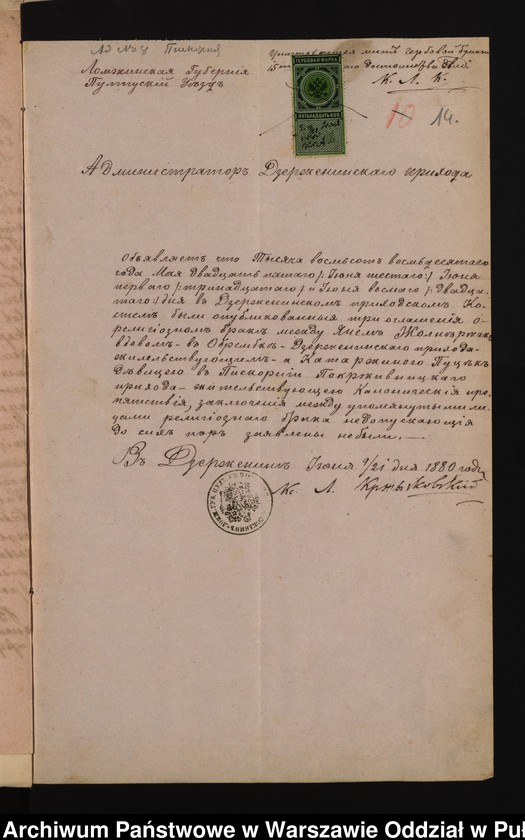 Ад №24
Уничтожается мѣсто гербовой бумаги
15 достоинства
К. Л. К.
Ломжинская Губернія
Пултускій Уѣздъ
ГЕРБОВАЯ МАРКА
ПЯТЬНАДЦАТЬ КОП.
10 14.
Администраторъ Дзерженинскаго прихода
Объявляетъ что Тысяча восемьсотъ восьмьдесятаго
года Мая двадцать пятаго /: Іюня шестаго :/ Іюня
перваго /: тринадцатаго :/ и Іюня восьмаго /: двадца-
таго :/ дня въ Дзерженинскомъ приходскомъ Ко-
стелѣ были опубликованныя три оглашенія о
религіозномъ бракѣ между Яномъ
вдовомъ - въ Обрембкѣ - Дзерженинскаго прихода -
жительствующемъ - а Катаржиною Пуцекъ
дѣвицею въ Пискорни Покрживницкаго
прихода - жительствующею Каноническія пре-
пятствія, заключенія между упомянутыми ли-
цами религіознаго брака недопускающія
до сихъ поръ заявлены небыли. —
Въ Дзерженинѣ Іюня 9/21 дня 1880 года
Кс. Л. Кржыжковскій
Archiwum Państwowe w Warszawie Oddział w Puł